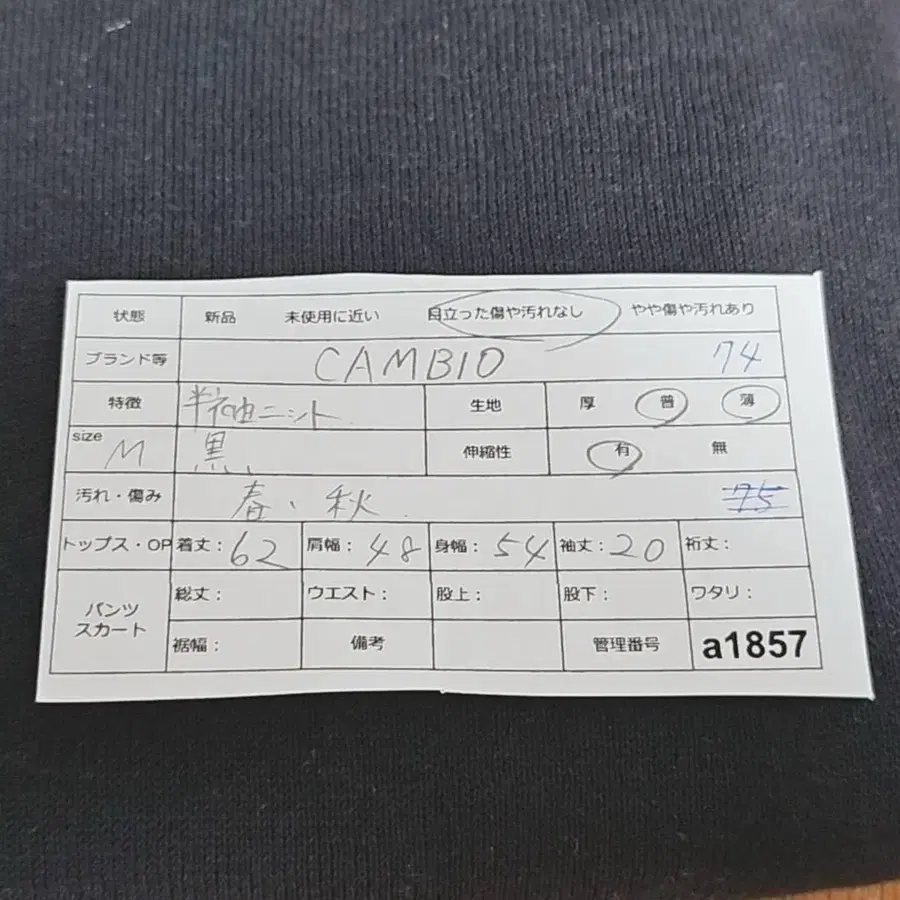 状態 新品 未使用に近い 目立った傷や汚れなし やや傷や汚れあり
ブランド等 CAMBIO 74
特徴 半袖ニット 生地 厚 普 薄
size M 黒 伸縮性 有 無
汚れ・傷み 春、秋 75
トップス・OP 着丈：62 肩幅：48 身幅：54 袖丈：20 裄丈：
パンツ スカート 総丈： ウエスト： 股上： 股下： ワタリ：
裾幅： 備考 管理番号 a1857